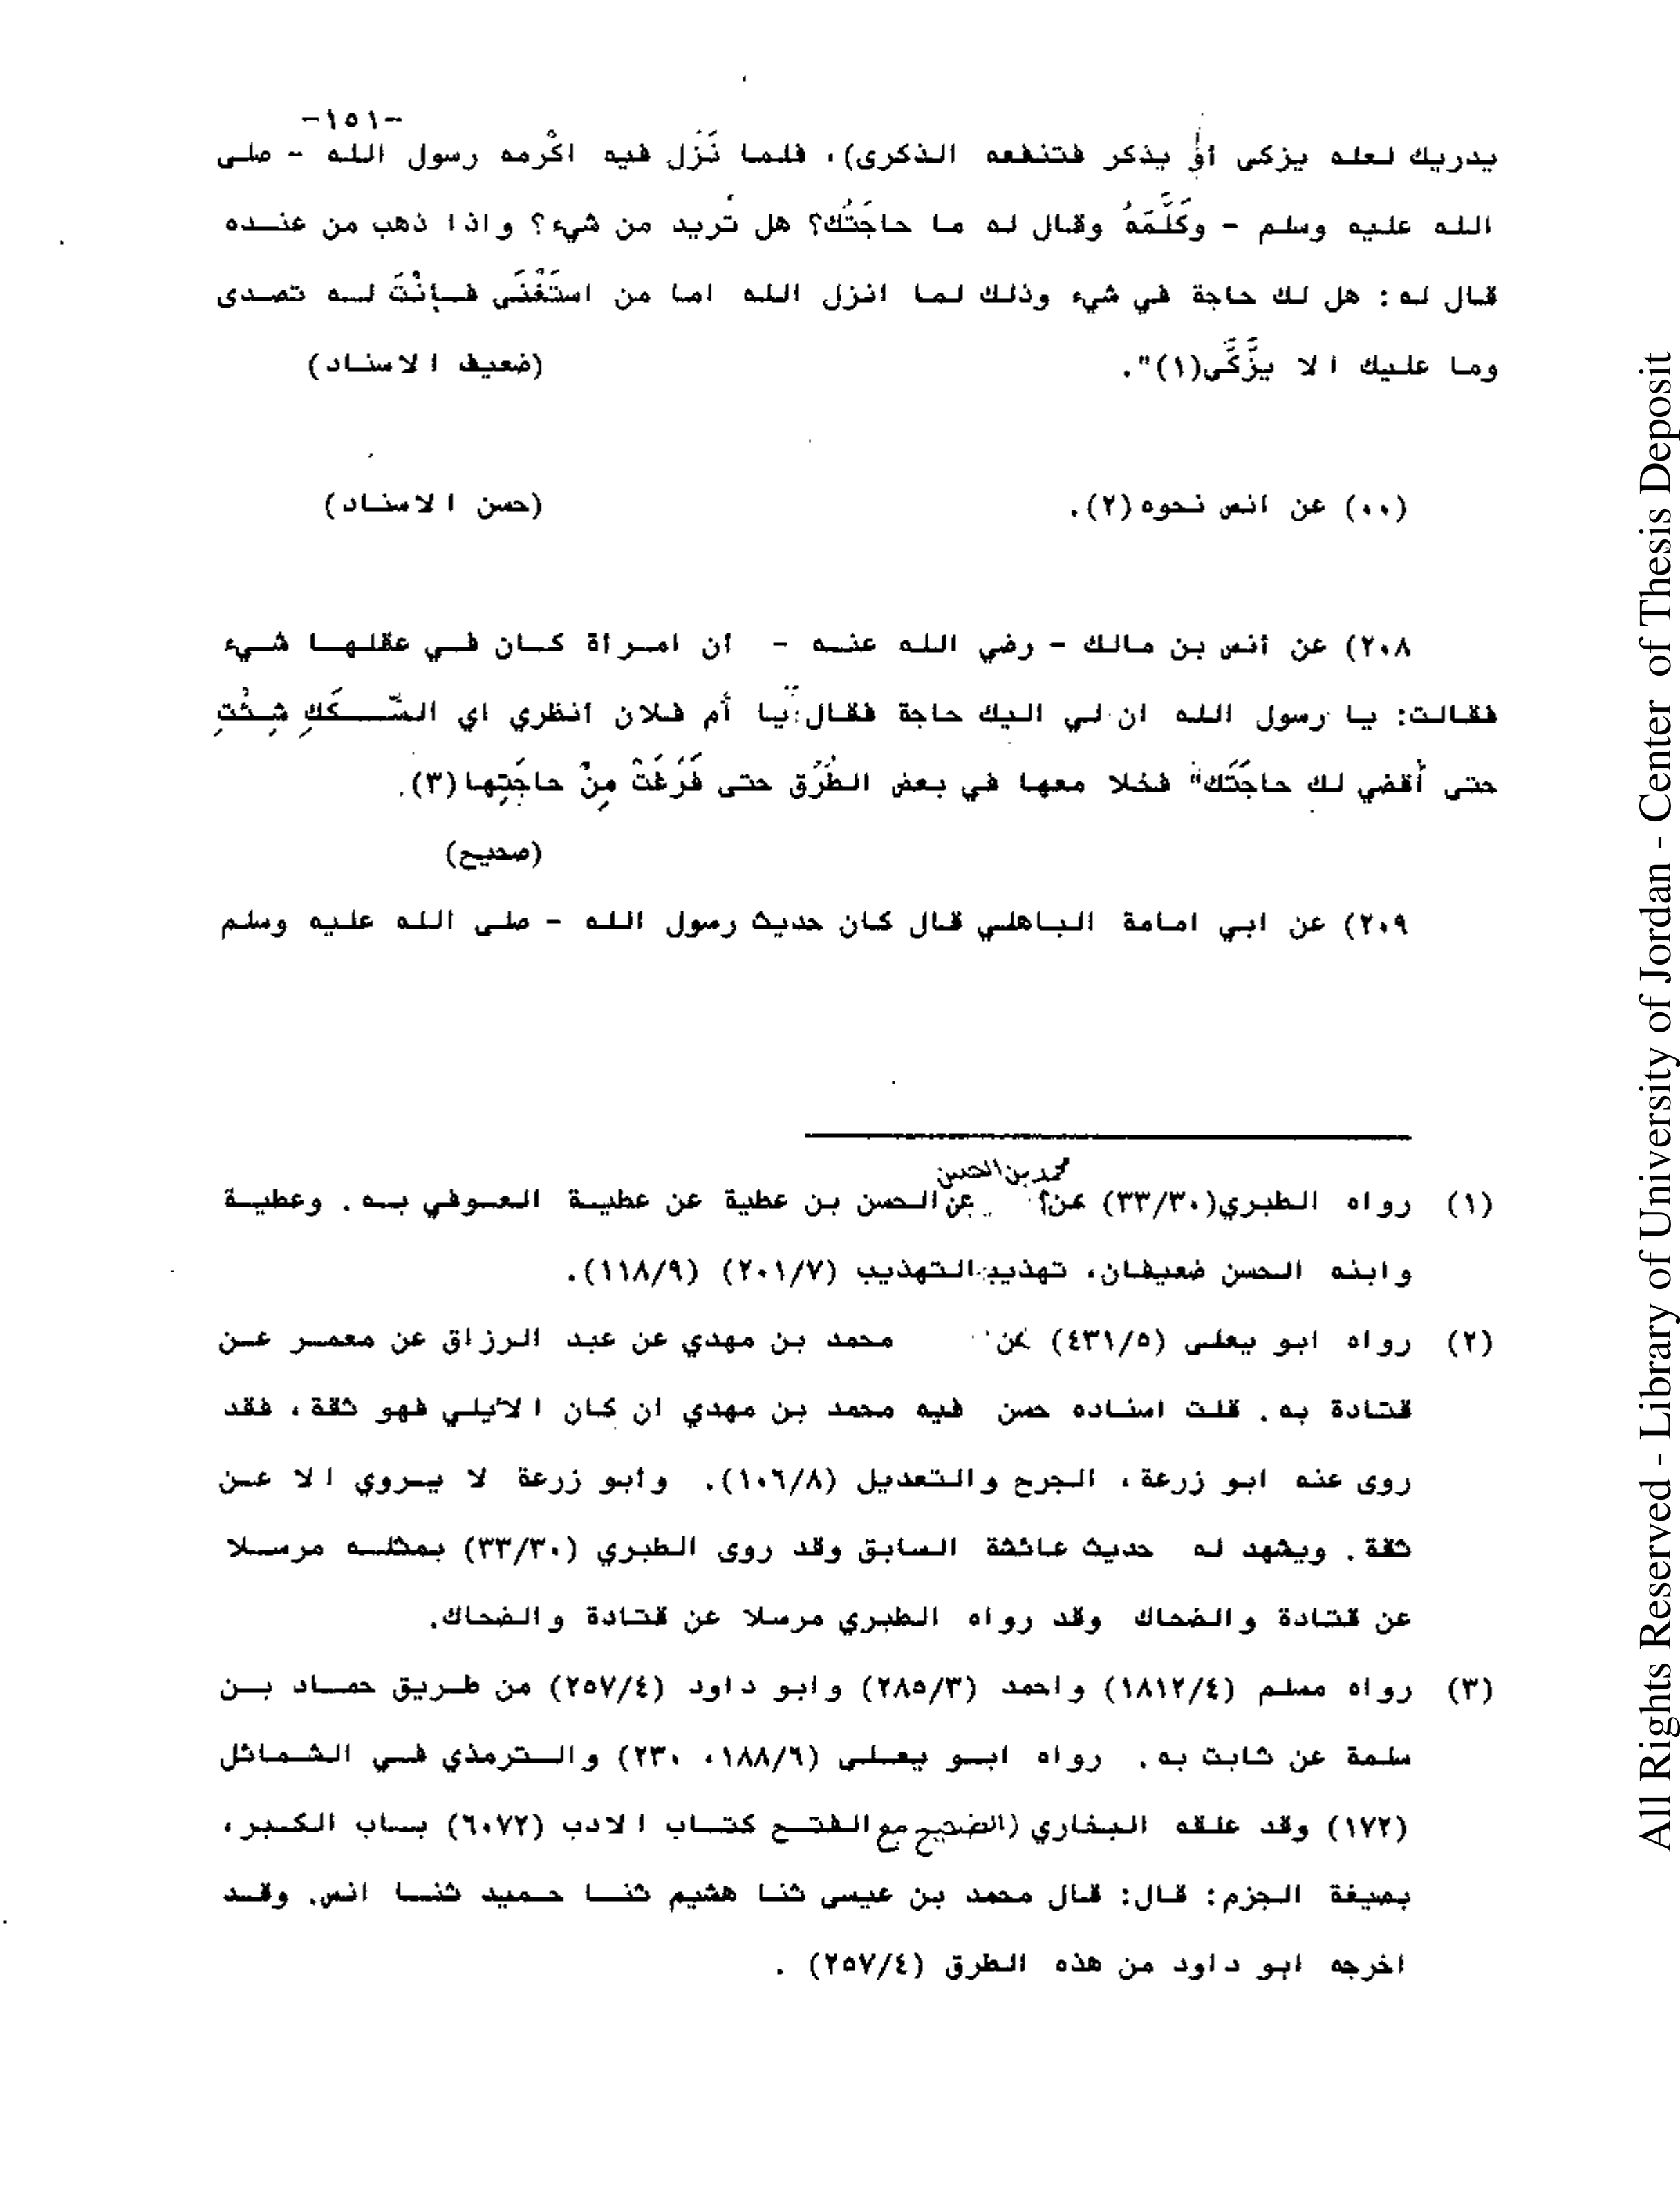 -١٥١-
يدريك لعله يزكى أو يذكر فتنفعه الذكرى)، فلما نَزَل فيه اكْرمه رسول الله - صلى
الله عليه وسلم - وكَلَّمَهُ وقال له ما حاجَتُك؟ هل تُريد من شيء؟ واذا ذهب من عنــده
قال له: هل لك حاجة في شيء وذلك لما انزل الله اما من استَغْنَى فــأنْتَ لــه تصـدى
وما عليك الا يزَّكَّى(١)".
(ضعيف الاسناد)
(٠٠) عن انس نحوه (٢).
(حسن الاسناد)
٢٠٨) عن أنس بن مالك - رضي الله عنـه - أن امـرأة كـان فـي عقلهـا شـيء
فقالت: يا رسول الله ان لي اليك حاجة فقال:"يا أم فلان أنظري اي السّــكَكِ شِـئْتِ
حتى أقضي لك حاجَتَك" فخلا معها في بعض الطُرُق حتى فَرَغَتْ مِنْ حاجَتِها(٣).
(صحيح)
٢٠٩) عن ابي امامة الباهلي قال كان حديث رسول الله - صلى الله عليه وسلم
محمد بن الحسن
(١) رواه الطبري(٣٣/٣٠) عن عن الحسن بن عطية عن عطيـة العـوفي بـه. وعطيـة
وابنه الحسن ضعيفان، تهذيب التهذيب (٢٠١/٧) (١١٨/٩).
(٢) رواه ابو يعلى (٤٣١/٥) عن محمد بن مهدي عن عبد الرزاق عن معمـر عـن
قتادة به. قلت اسناده حسن فيه محمد بن مهدي ان كان الايلي فهو ثقة، فقد
روى عنه ابو زرعة، الجرح والتعديل (١٠٦/٨). وأبو زرعة لا يـروي الا عـن
ثقة. ويشهد له حديث عائشة السابق وقد روى الطبري (٣٣/٣٠) بمثلـه مرسـلا
عن قتادة والضحاك وقد رواه الطبري مرسلا عن قتادة والضحاك.
(٣) رواه مسلم (١٨١٢/٤) واحمد (٢٨٥/٣) وابو داود (٢٥٧/٤) من طـريق حمـاد بـن
سلمة عن ثابت به. رواه ابـو يعـلى (١٨٨/٦، ٢٣٠) والـترمذي فـي الشـمائل
(١٧٢) وقد علقه البخاري (الصحيح مع الفتـح كتـاب الادب (٦٠٧٢) بـاب الكـبر،
بصيغة الجزم: قال: قال محمد بن عيسى ثنا هشيم ثنـا حـميد ثنـا انس. وقـد
اخرجه ابو داود من هذه الطرق (٢٥٧/٤) .
All Rights Reserved - Library of University of Jordan - Center of Thesis Deposit